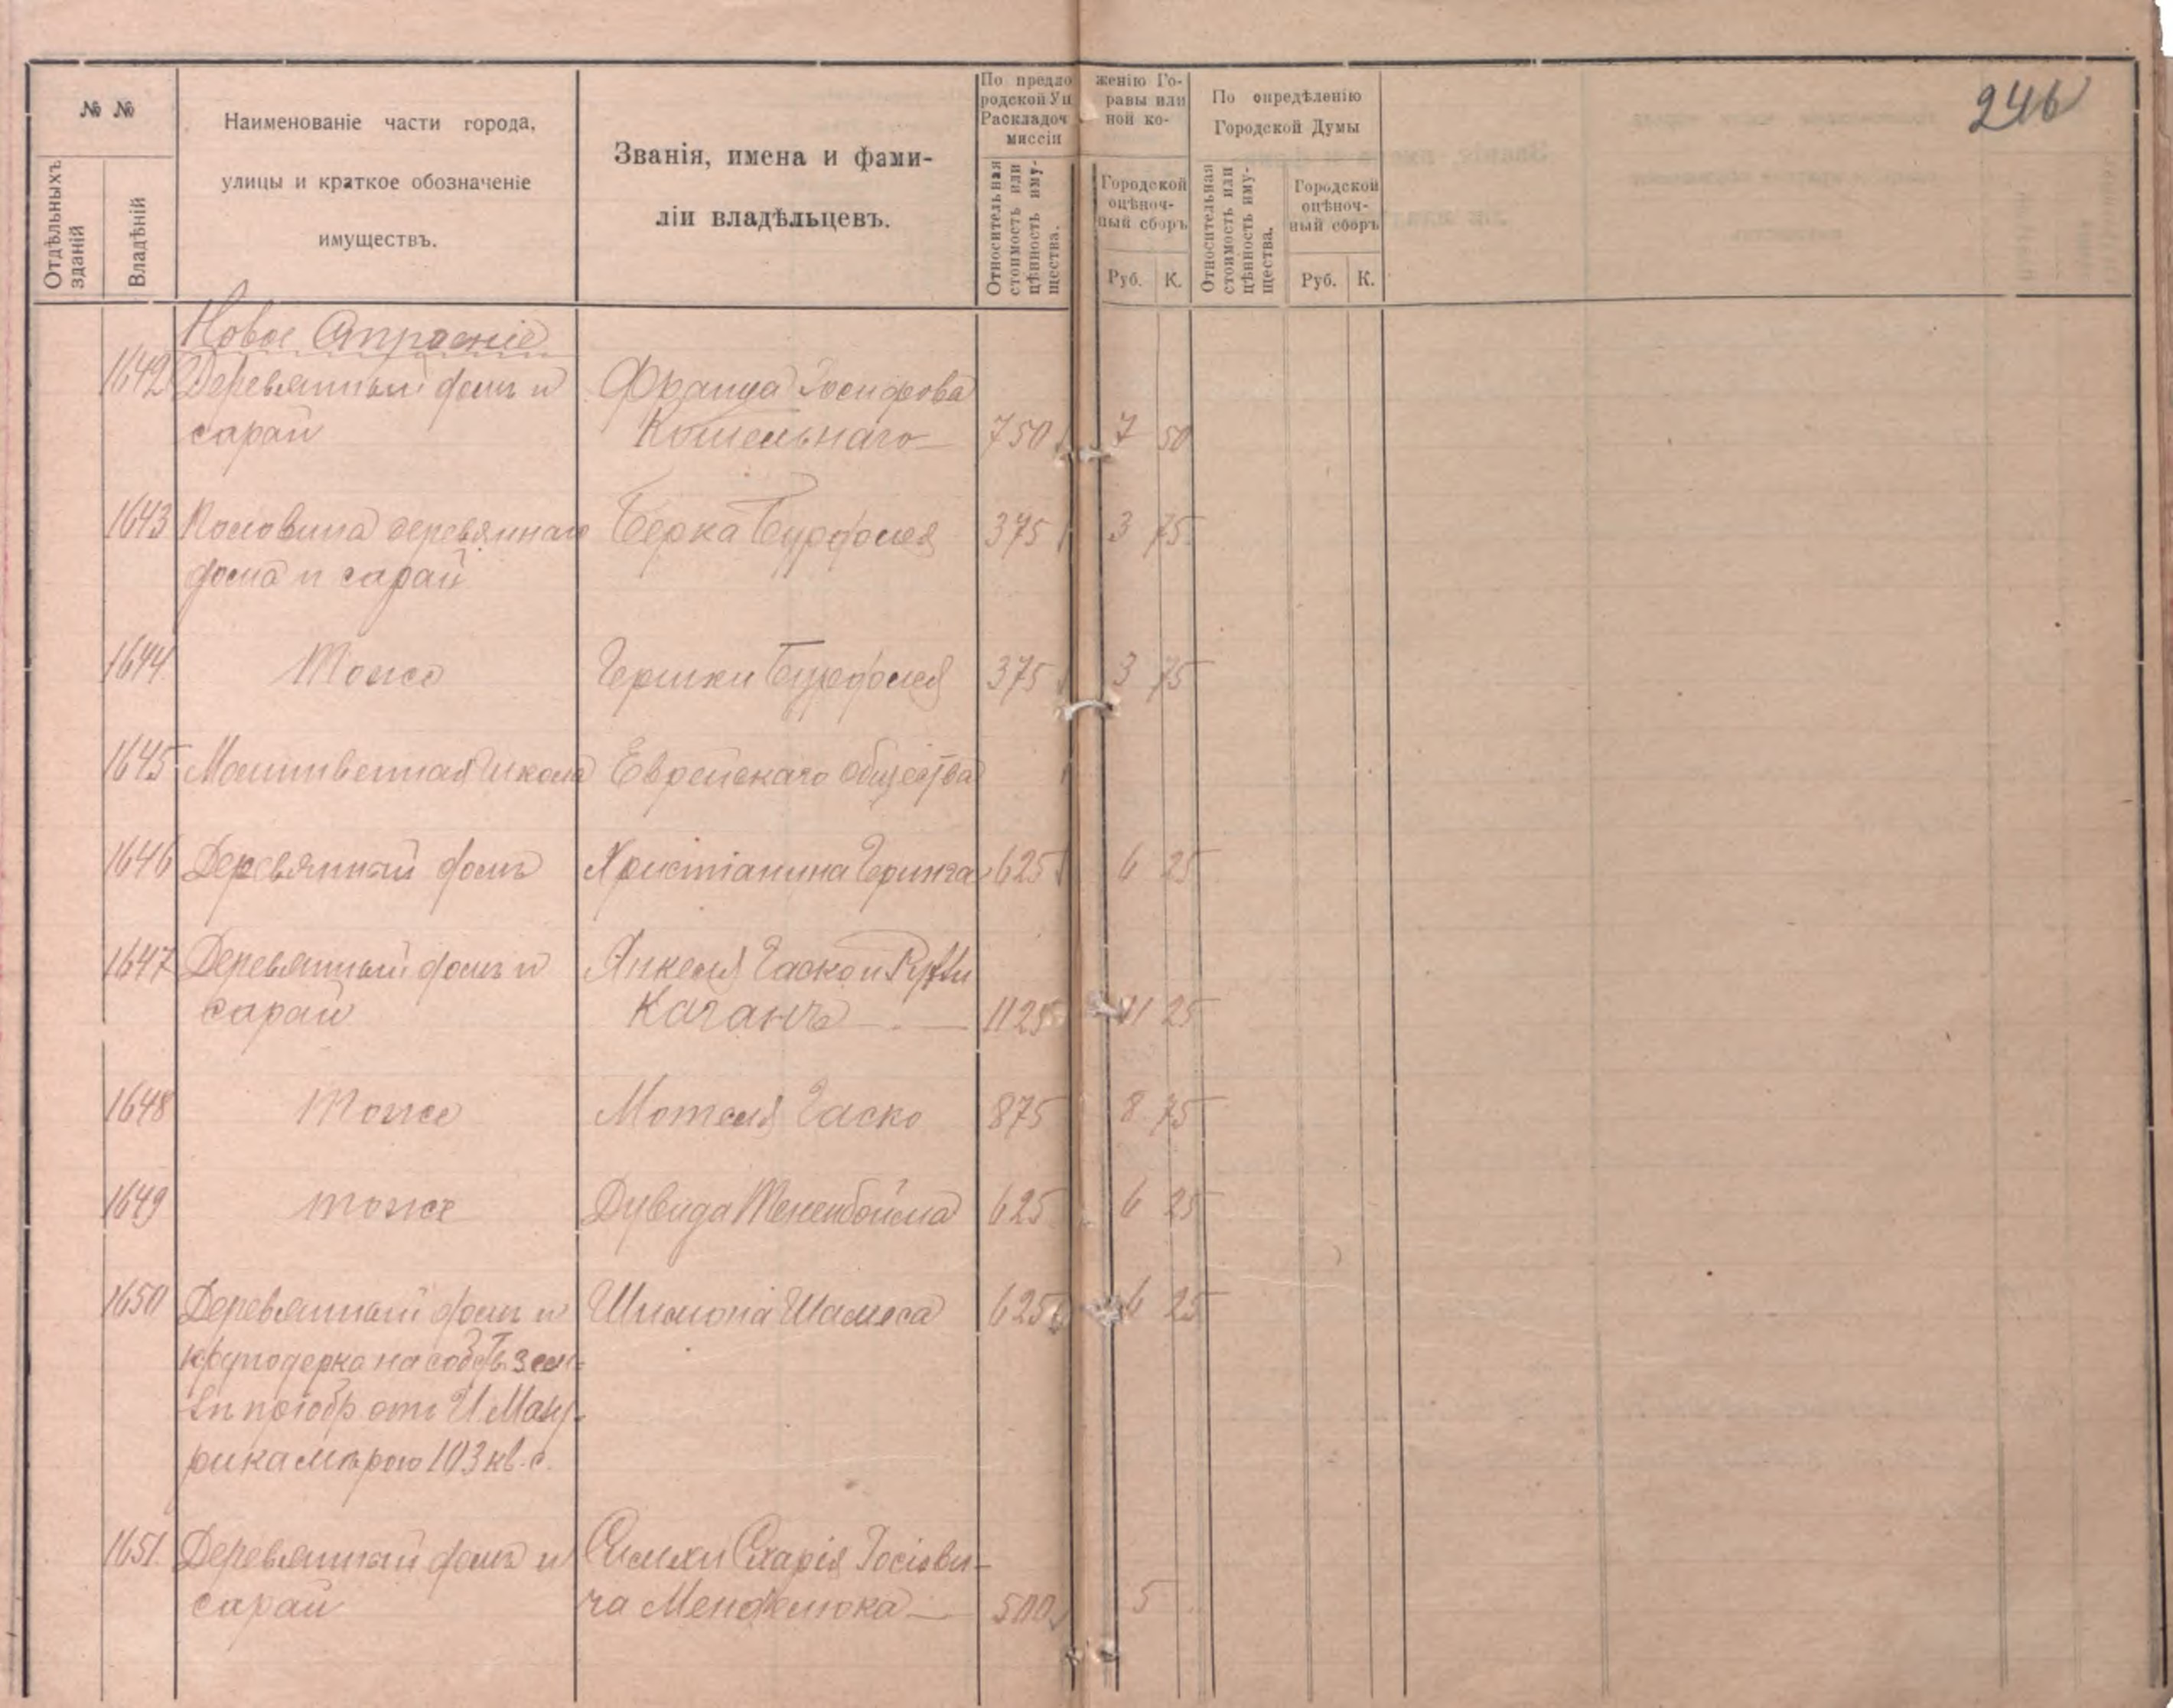 246
№ №
Отдѣльныхъ зданій
Владѣній
Наименованіе части города,
улицы и краткое обозначеніе
имуществъ.
Званія, имена и фами-
ліи владѣльцевъ.
По предложенію Го-
родской Управы или
Раскладочной ко-
миссіи
Относительная стоимость или цѣнность иму-щества.
Городской оцѣноч-ный сборъ
Руб. К.
По опредѣленію
Городской Думы
Относительная стоимость или цѣнность иму-щества.
Городской оцѣноч-ный сборъ
Руб. К.
Новое Строеніе
1642 Деревянный домъ и Франца Іосифова
сарай Кошельнаго 750 7 50
1643 Половина деревяннаго Берка 375 3 75
дома и сарай
1644 Тоже Гершки 375 3 75
1645 Молитвенная школа Еврейскаго общества
1646 Деревянный домъ Христіанина Геринга 625 6 25
1647 Деревянный домъ и Янкеля Гаско и
сарай Каганъ 1125 11 25
1648 Тоже Мотеля Гаско 875 8 75
1649 тоже Дувида Тененбойма 625 6 25
1650 Деревянный домъ и Шлиома Шамеса 625 6 25
круподерка на собств. зем-
лѣ пріобр. отъ И
рика мѣрою 103 кв. с.
1651 Деревянный домъ и Симхи Схарія Іосіови-
сарай ча 500 5